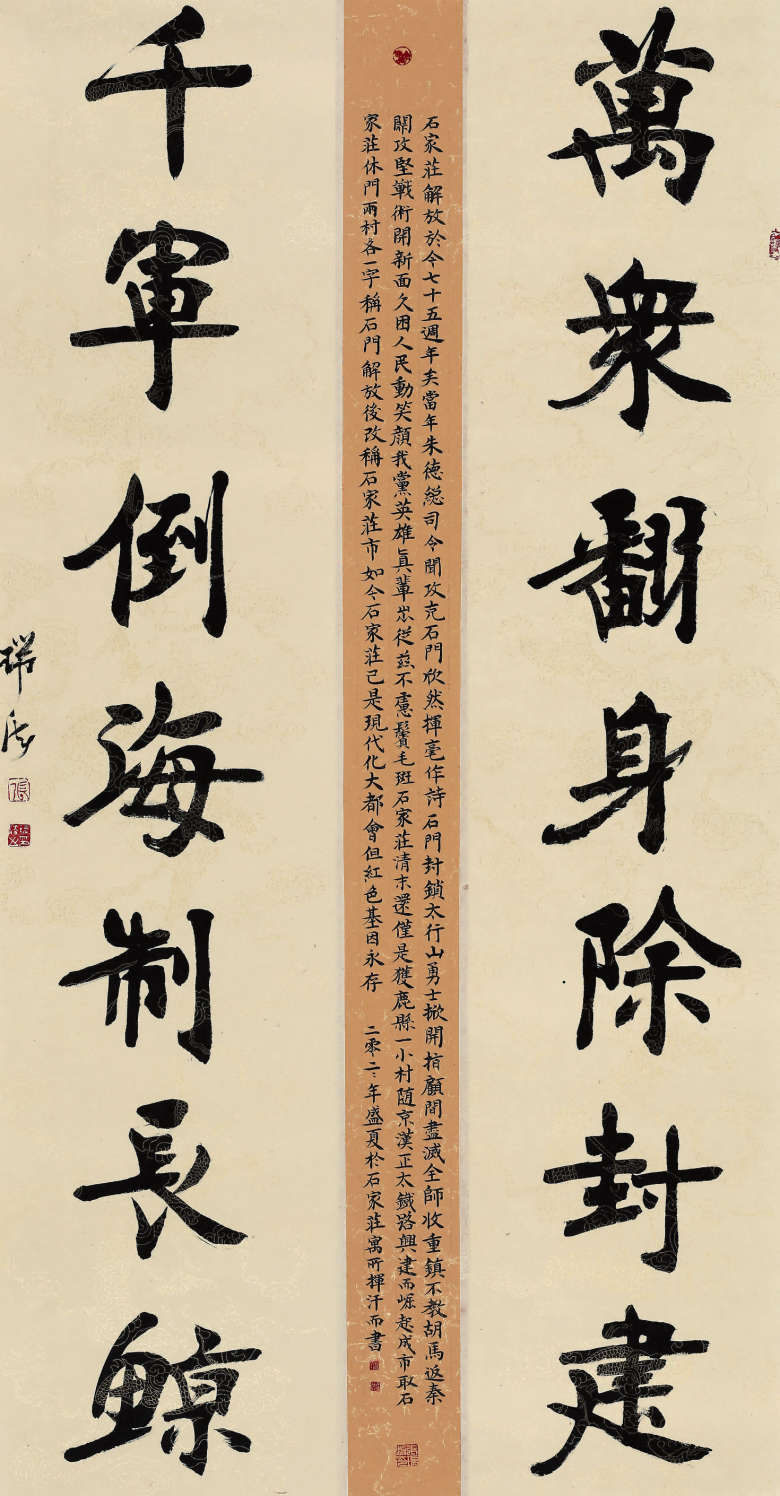 萬衆翻身除封建
石家莊解放於今七十五週年矣當年朱德總司令聞攻克石門欣然揮毫作詩石門封鎖太行山勇士掀開指顧間盡滅全師收重鎮不教胡馬返秦
關攻堅戰術開新面久困人民動笑顏我黨英雄真輩出從茲不慮鬢毛斑石家莊清末還僅是獲鹿縣一小村隨京漢正太鐵路興建而崛起成市取石
家莊休門兩村各一字稱石門解放後改稱石家莊市如今石家莊已是現代化大都會但紅色基因永存 二零二二年盛夏於石家莊寓所揮汗而書
千軍倒海制長鲸